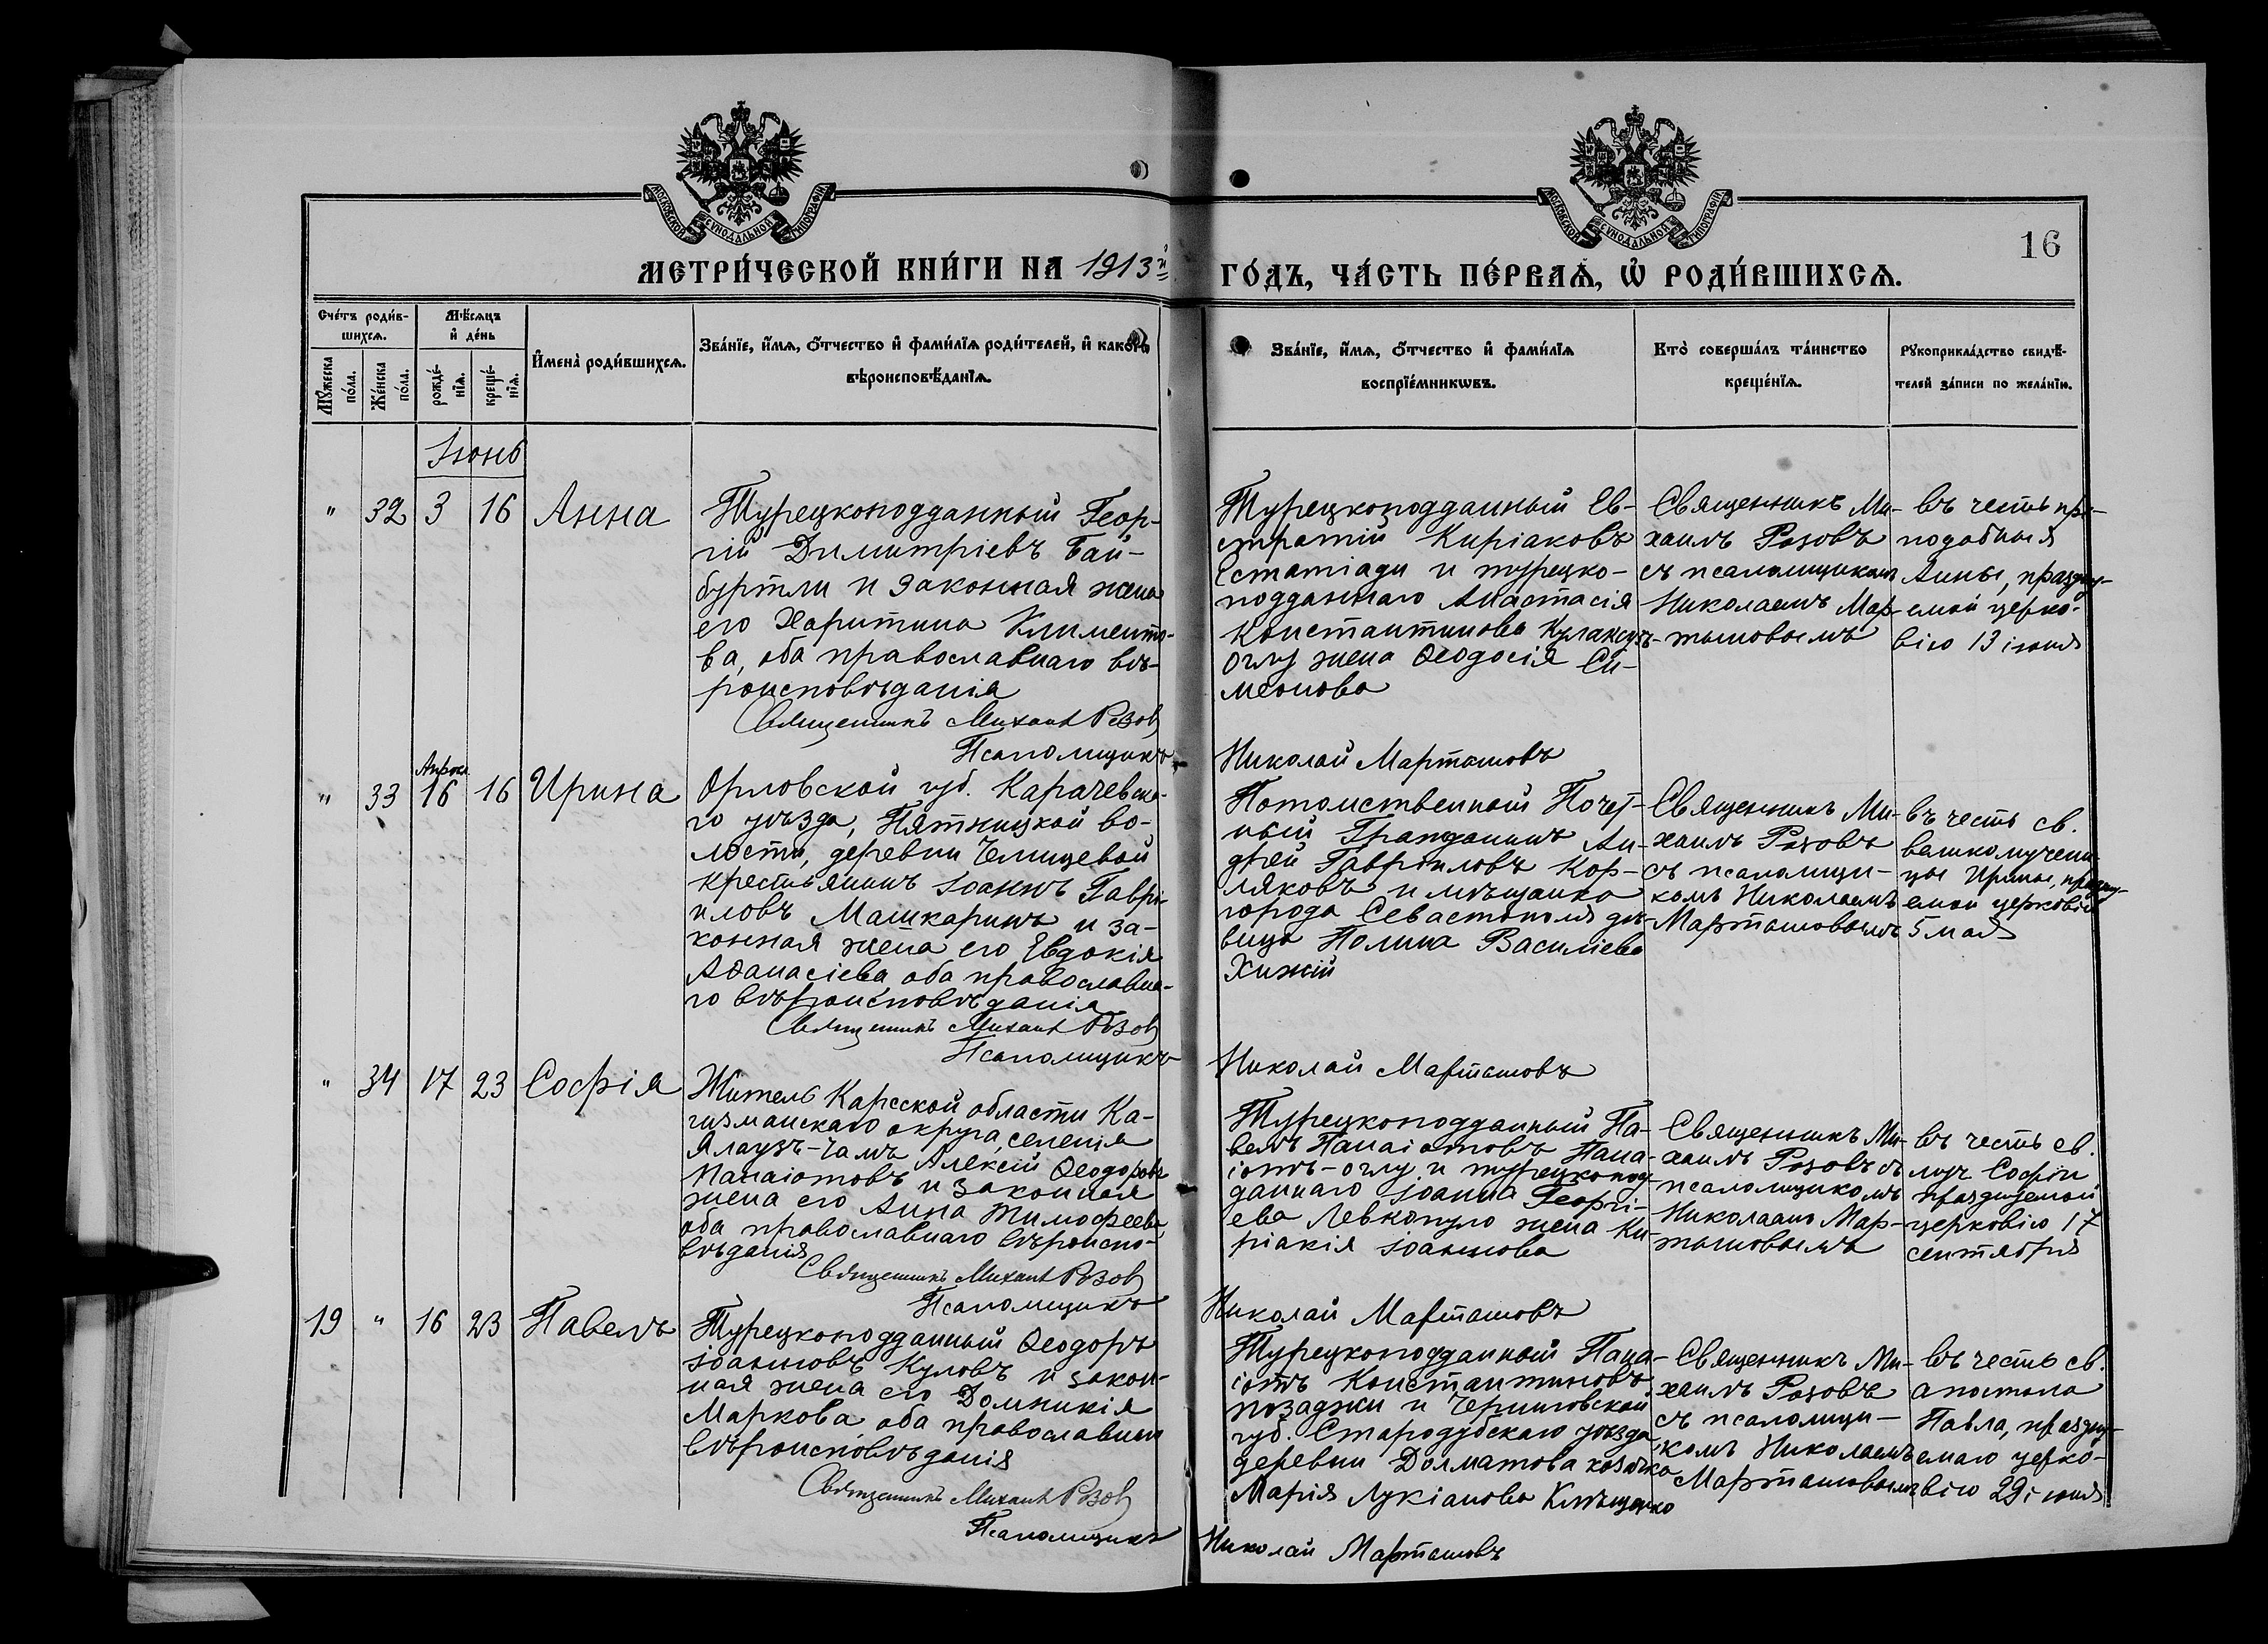 МОСКОВСКОЙ СѴНОДАЛЬНОЙ ТИПОГРАФІИ
МОСКОВСКОЙ СѴНОДАЛЬНОЙ ТИПОГРАФІИ
16
МЕТРИ́ЧЕСКОЙ КНИ́ГИ НА 1913й ГО́ДЪ, ЧА́СТЬ ПЕ́РВАѦ, Ѡ РОДИ́ВШИХСѦ.
Сче́тъ роди́в-
шихсѧ.
Мꙋ́жеска по́ла.
Же́нска по́ла.
Мѣ́сѧцъ
и҆ де́нь
рожде́-
нїѧ.
креще́-
нїѧ.
И҆мена̀ роди́вшихсѧ.
Зва́нїе, и҆́мѧ, ѻ҆́тчество и҆ фами́лїѧ роди́телей, и҆ како́гѡ
вѣроисповѣ́данїѧ.
Зва́нїе, и҆́мѧ, ѻ҆́тчество и҆ фами́лїѧ
воспрїе́мникѡвъ.
Кто̀ соверша́лъ та́инство
креще́нїѧ.
Рꙋкоприкла́дство свидѣ́-
телей за́писи по жела́нїю.
Іюнь
" 32 3 16 Анна
Турецкоподданный Геор-
гій Димитріевъ Бай-
буртли и законная жена
его Харитина Клименто-
ва, оба православнаго вѣ-
роисповѣданія
Священникъ Михаилъ Розовъ
Псаломщикъ Николай Марташовъ
Турецкоподданный Ев-
стратій Киріаковъ
Естатіади и турецко-
подданнаго Анастасія
Константинова
оглу жена Ѳеодосія Си-
меонова
Священникъ Ми-
хаилъ Розовъ
съ псаломщикомъ
Николаемъ Мар-
ташовымъ
въ честь пре-
подобныя
Анны, праздну-
емой церко-
вію 13 іюня
" 33 Апрѣл. 16 16 Ирина
Орловской губ. Карачевска-
го уѣзда, Пятницкой во-
лости, деревни
крестьянинъ Іоаннъ Гаврі-
иловъ Машкаринъ и за-
конная жена его Евдокія
Аѳанасіева, оба православна-
го вѣроисповѣданія
Священникъ Михаилъ Розовъ
Псаломщикъ Николай Марташовъ
Потомственный Почет-
ный Гражданинъ Ан-
дрей Гавріиловъ Кор-
ляковъ и мѣщанка
города Севастополя дѣ-
вица Полина Василіева
Хижій
Священникъ Ми-
хаилъ Розовъ
съ псаломщи-
комъ Николаемъ
Марташовымъ
въ честь св.
великомучени-
цы Ирины, праздну-
емой церковію
5 мая
" 34 17 23 Софія
Житель Карсской области Ка-
гизманскаго округа, селенія
Ялаузъ-Чамъ Алексій Ѳеодоровъ
Панаіотовъ и законная
жена его Анна Тимоѳеева
оба православнаго вѣроиспо-
вѣданія
Священникъ Михаилъ Розовъ
Псаломщикъ Николай Марташовъ
Турецкоподданный Па-
велъ Панаіотовъ Пана-
іотъ-оглу и турецкопод-
даннаго Іоанна Георгі-
ева Левкопуло жена Ки-
ріакія Іоаннова
Священникъ Ми-
хаилъ Розовъ съ
псаломщикомъ
Николаемъ Мар-
ташовымъ
въ честь св.
муч. Софіи
празднуемой
церковію 17
сентября
19 " 16 23 Павелъ
Турецкоподданный Ѳеодоръ
Іоанновъ Куловъ и закон-
ная жена его Домникія
Маркова, оба православнаго
вѣроисповѣданія
Священникъ Михаилъ Розовъ
Псаломщикъ Николай Марташовъ
Турецкоподданный Пана-
іотъ Константиновъ
позаджи и Черниговской
губ. Стародубскаго уѣзда
деревни Долматова козачка
Марія Лукіанова Клѣщенко
Священникъ Ми-
хаилъ Розовъ
съ псаломщи-
комъ Николаемъ
Марташовымъ
въ честь св.
апостола
Павла, праздну-
емаго церко-
вію 29 іюня